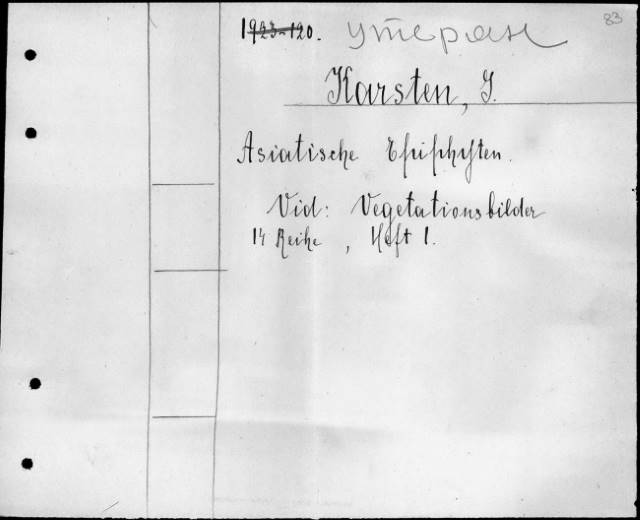 83
1923-120. утерян
Karsten, G.
Asiatische Epiphyten.
Vid: Vegetationsbilder
14 Reihe, Heft 1.